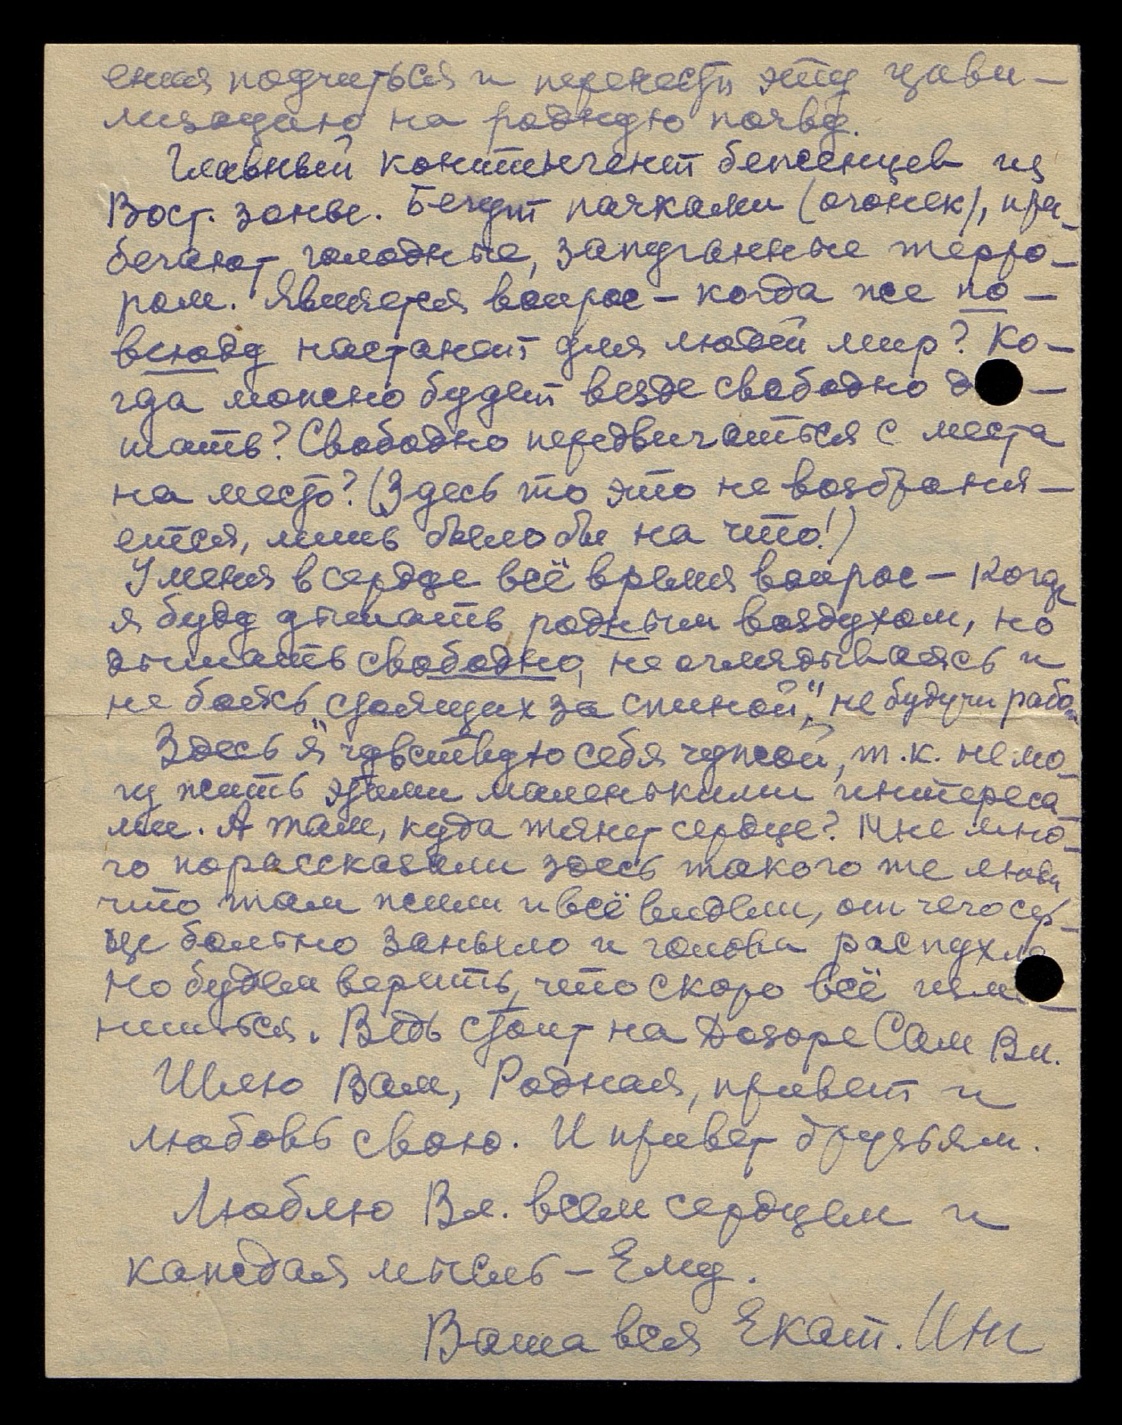 ения подчиться и перенести эту циви-
лизацию на родную почву.
Главный контингент беженцев из
Вост. зоны. Бегут пачками (огонек), при-
бегают голодные, запуганные терро-
ром. Является вопрос – когда же по-
всюду настанет для людей мир? Ко-
гда можно будет везде свободно д -
шать? Свободно передвигаться с места
на место? (Здесь то это не возбраня-
ется, лишь было бы на что!)
У меня в сердце всё время вопрос – когда
я буду дышать родным воздухом, но
дышать свободно, не оглядываясь и
не боясь стоящих за спиной", не будучи рабом
Здесь я "чувствую себя чужой, т.к. не мо-
гу жить этими маленькими интереса
ми. А там, куда тянет сердце? Мне мно-
го порассказали здесь такого те люди
что там жили и всё видели, от чего сер-
це больно заныло и голова распухла
Но будем верить, что скоро всё изме-
ниться. Ведь стоит на Дозоре Сам Вл.
Шлю Вам, Родная, привет и
любовь свою. И привет друзьям.
Люблю Вл. всем сердцем и
каждая мысль – Ему.
Ваша вся Екат. Инг